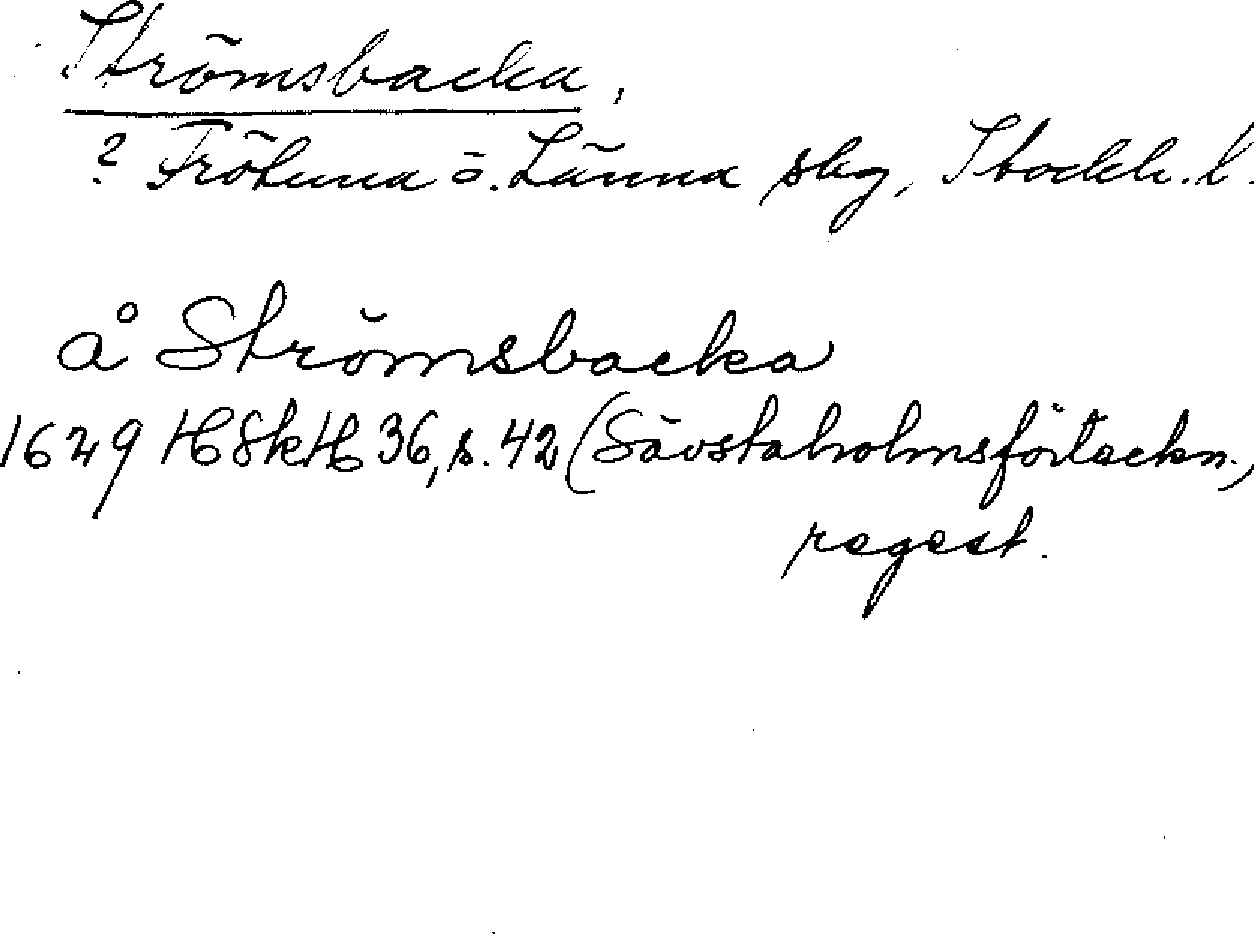 Strömsbacka,
? Frötuna o. Länna skg, Stockh. l.
å Strömsbacka
1629 HSkH 36, s. 42 (Sävstaholmsförteckn.,
regest.